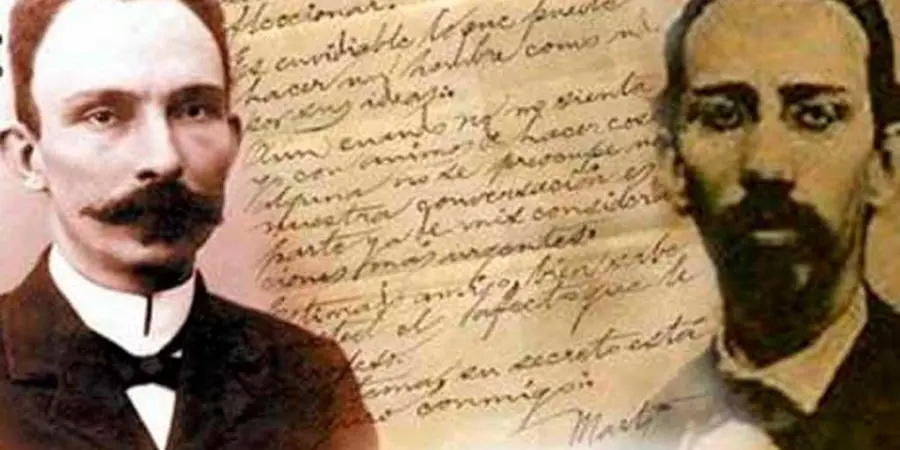 leccionar.
Es envidiable lo que puede
hacer un hombre como ud.
por sus ideas.
Aun cuando no me sienta
yo con animos de hacer cosa
alguna no se preocupe
nuestra conversación es
parte ya de mis considera
ciones mas urgentes.
Estimado amigo, bien sabe
usted el afecto que le
su secreto está
conmigo.
Martí